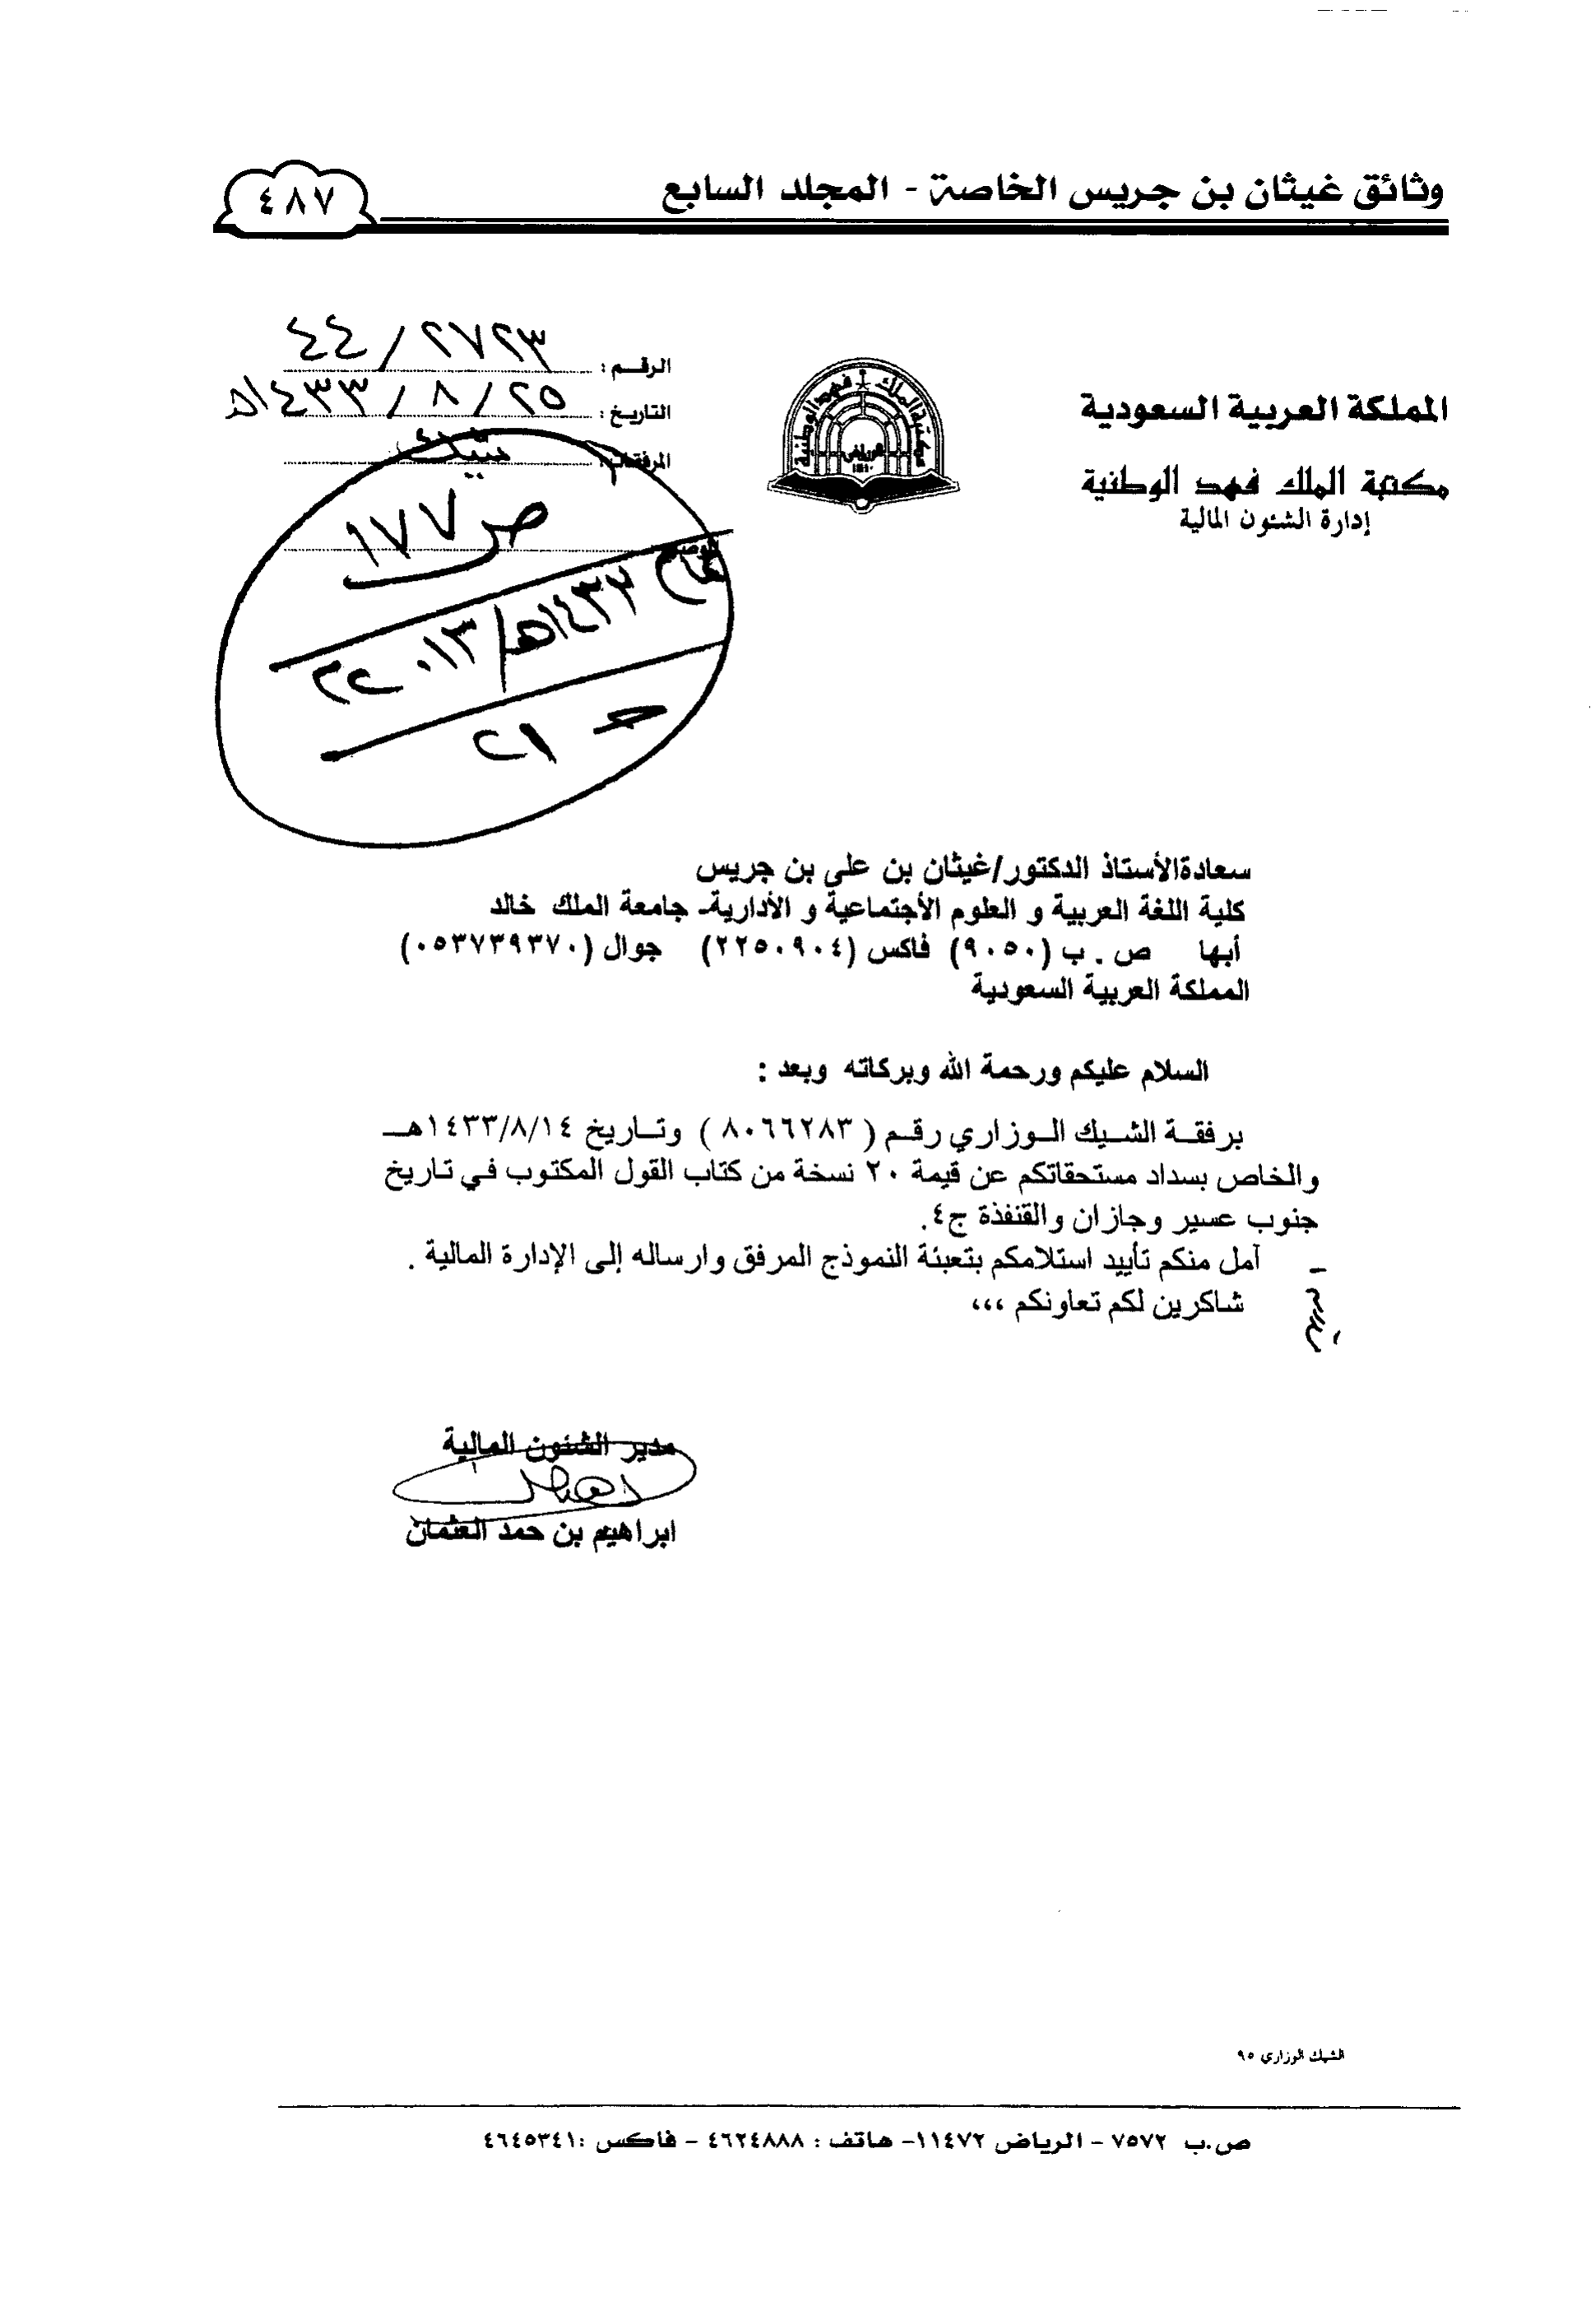 وثائق غيثان بن جريس الخاصة - المجلد السابع
٤٨٧
المملكة العربية السعودية
مكتبة الملك فهد الوطنية
إدارة الشئون المالية
مكتبة الملك فهد الوطنية
الرياض
الرقم : ٢٧٢٣ / ٤٤
التاريخ : ٢٥ / ٨ / ١٤٣٣هـ
المرفقات : شيك
ص ١٧٧
عام
١٤٣٣هـ / ٢٠١٣م
حـ ٢١
سعادةالأستاذ الدكتور/غيثان بن على بن جريس
كلية اللغة العربية و العلوم الأجتماعية و الأدارية- جامعة الملك خالد
أبها ص . ب (٩٠٥٠) فاكس (٢٢٥٠٩٠٤) جوال (٠٥٣٧٣٩٣٧٠)
المملكة العربية السعودية
السلام عليكم ورحمة الله وبركاته وبعد :
برفقة الشيك الوزاري رقم ( ٨٠٦٦٢٨٣ ) وتاريخ ١٤٣٣/٨/١٤هـ
والخاص بسداد مستحقاتكم عن قيمة ٢٠ نسخة من كتاب القول المكتوب في تاريخ
جنوب عسير وجازان والقنفذة ج٤.
آمل منكم تأييد استلامكم بتعبئة النموذج المرفق وارساله إلى الإدارة المالية .
شاكرين لكم تعاونكم ،،،
مدير الشئون المالية
ابراهيم بن حمد العثمان
الشيك الوزاري ٩٥
ص.ب ٧٥٧٢ - الرياض ١١٤٧٢- هاتف : ٤٦٢٤٨٨٨ - فاكس :٤٦٤٥٣٤١